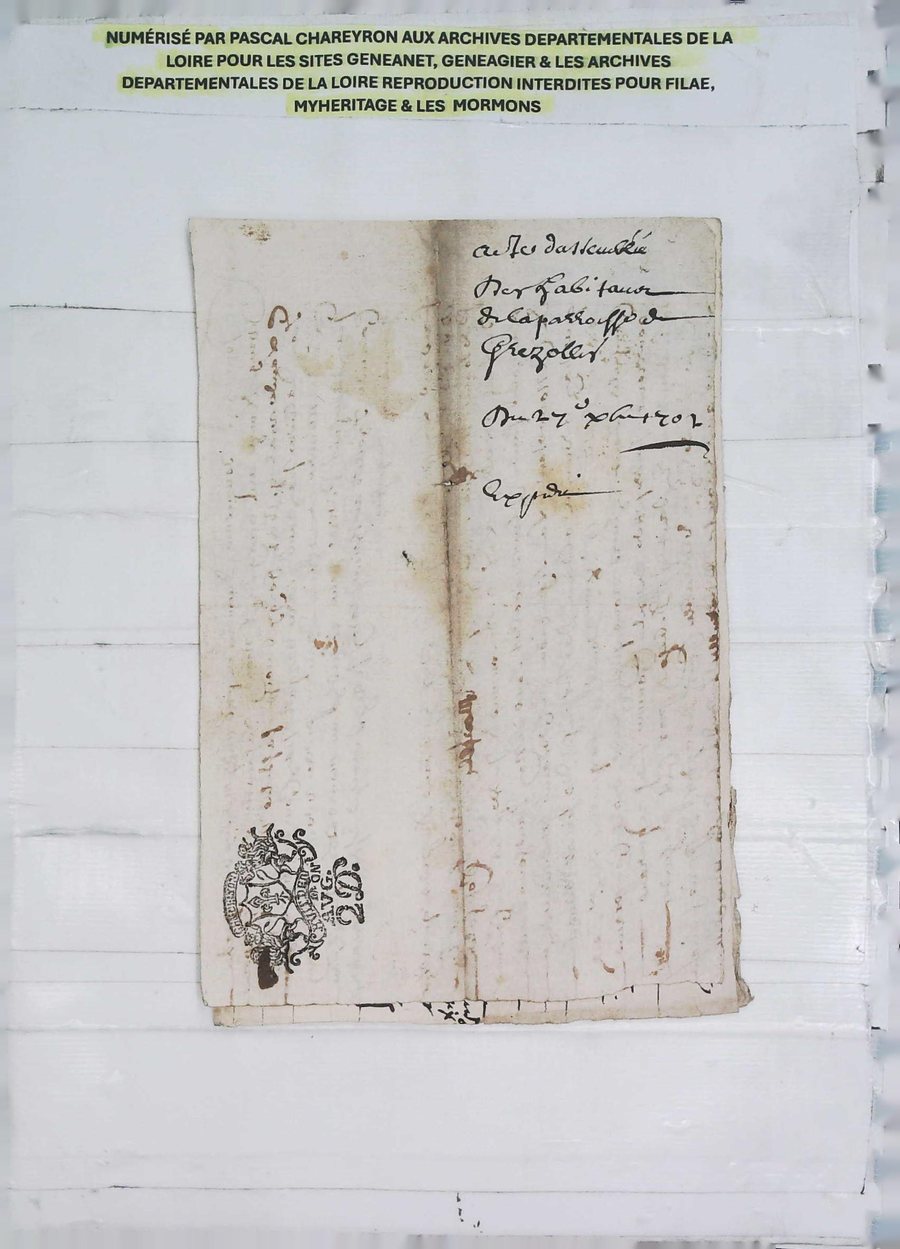 NUMÉRISÉ PAR PASCAL CHAREYRON AUX ARCHIVES DEPARTEMENTALES DE LA
LOIRE POUR LES SITES GENEANET, GENEAGIER & LES ARCHIVES
DEPARTEMENTALES DE LA LOIRE REPRODUCTION INTERDITES POUR FILAE,
MYHERITAGE & LES MORMONS
actes dassemblée
Des habitans
de la parroisse de
Grezolles
Du 27e xbre 1702
Expedié
AVG.
2D.